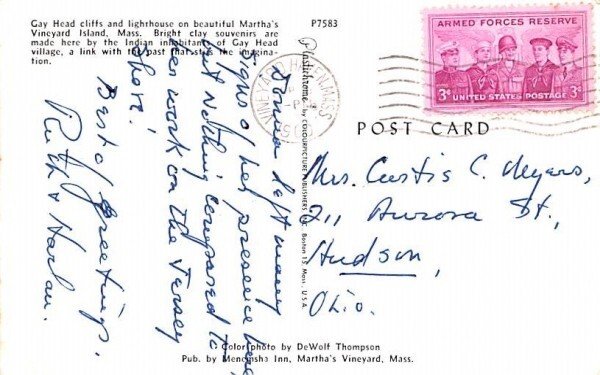 Gay Head cliffs and lighthouse on beautiful Martha's
Vineyard Island, Mass. Bright clay souvenirs are
made here by the Indian inhabitants of Gay Head
village, a link with the past that stirs the imagina-
tion.
P7583
ARMED FORCES RESERVE
3¢ UNITED STATES POSTAGE 3¢
VINEYARD HAVEN, MASS.
Plastichrome by COLOURPICTURE PUBLISHERS, INC. Boston 15, Mass., U.S.A.
POST CARD
left many
signs of her presence here
but nothing compared to
her work on the Jersey
Shore!
Best of Greetings,
Ruth & Harlan.
Mrs. Curtis C. Meyers,
211 Aurora St.,
Hudson,
Ohio.
Color photo by DeWolf Thompson
Pub. by Menemsha Inn, Martha's Vineyard, Mass.